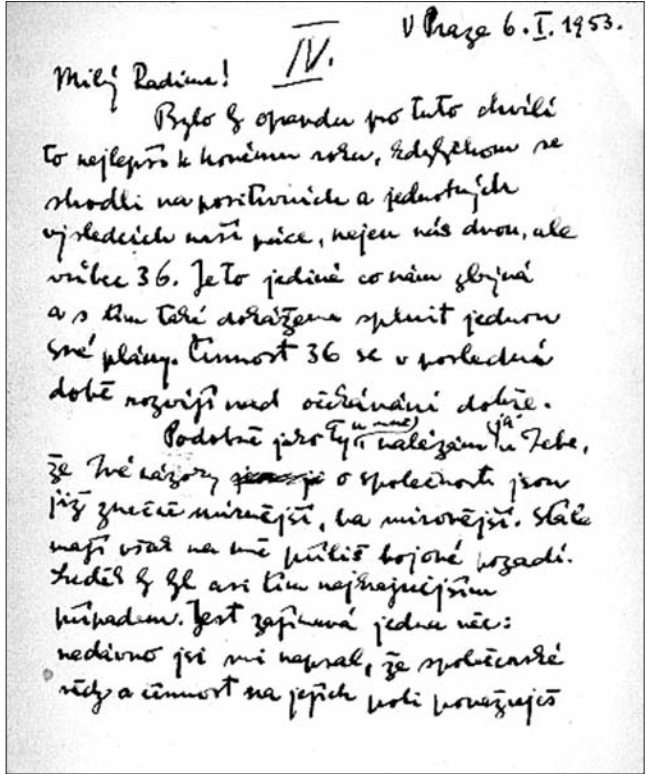 V Praze 6. I. 1953.
IV.
Milý Radime!
Bylo by opravdu pro tuto chvíli
to nejlepší k novému roku, kdybychom se
shodli na positivních a jednotných
výsledcích naší práce, nejen nás dvou, ale
vůbec 36. Je to jediné co nám zbývá
a s tím také dokážeme splnit jednou
své plány. Činnost 36 se v poslední
době rozvíjí nad očekávání dobře.
Podobně jako Ty (u mne) nalézám já u Tebe,
že Tvé názory o společnosti jsou
již značně mírnější, ba mírovější. Stále
mají však na mě příliš bojové pozadí.
Luděk by byl asi tím nejkrajnějším
případem. Jest zajímavá jedna věc:
nedávno jsi mi napsal, že společenské
vědy a činnost na jejich poli považuješ